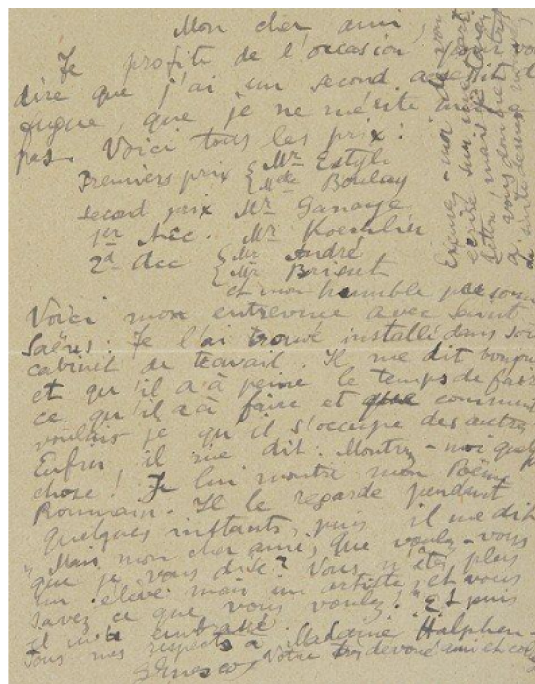 Mon cher ami,
Je profite de l'occasion pour vous
dire que j'ai un second accessit de
fugue, que je ne mérite même
pas. Voici tous les prix :
Premiers prix { Mr Estyle
{ Mde Boulay
second prix Mr Ganaye
1er Acc. Mr Koechlin
2d Acc { Mr André
{ Mr Brisset
et mon humble personne
Voici mon entrevue avec Saint
Saëns : Je l'ai trouvé installé dans son
cabinet de travail. Il me dit bonjour
et qu'il a à peine le temps de faire
ce qu'il a à faire et que comment
voulais je qu'il s'occupe des autres
Enfin, il me dit : Montrez-moi quelque
chose ! Je lui montre mon Poème
Roumain. Il le regarde pendant
quelques instants, puis il me dit
" Mais mon cher ami, que voulez-vous
que je vous dise ? Vous n'êtes plus
un élève mais un artiste, et vous
savez ce que vous voulez ! " Et puis
il m'a embrassé.
Tous mes respects à Madame Halphen
Votre très dévoué ami et
Enesco
Excusez-moi de vous
écrire sur une
lettre, mais
à vous
de suite